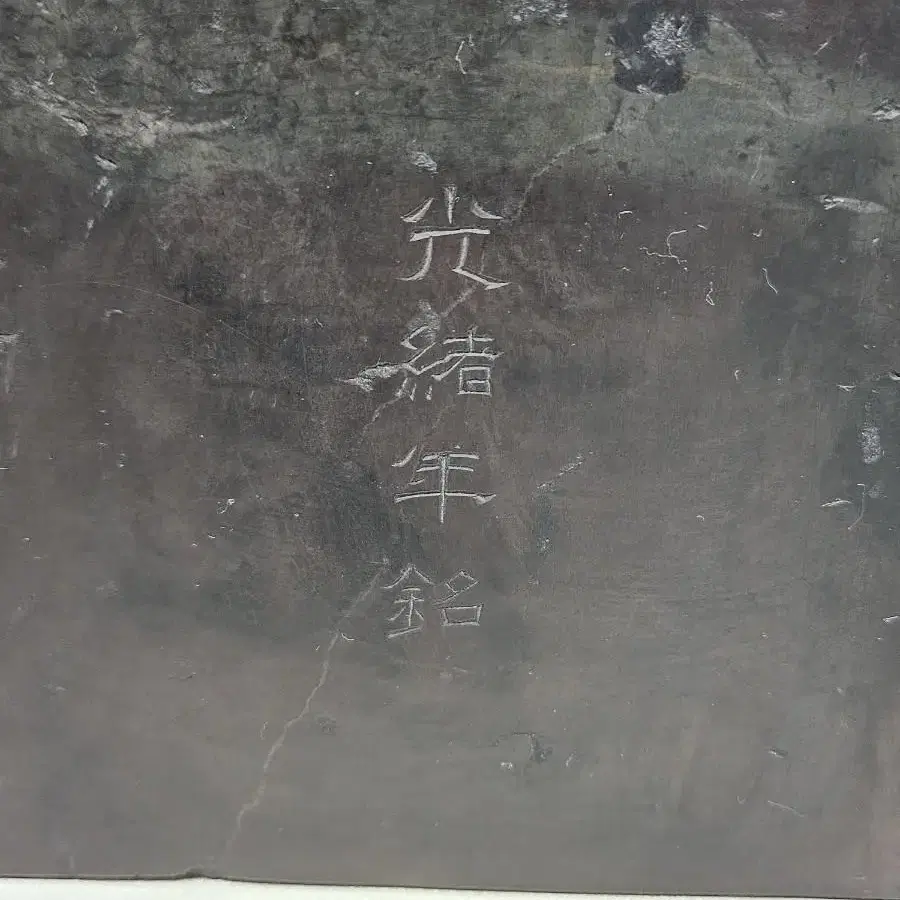 光緒年銘